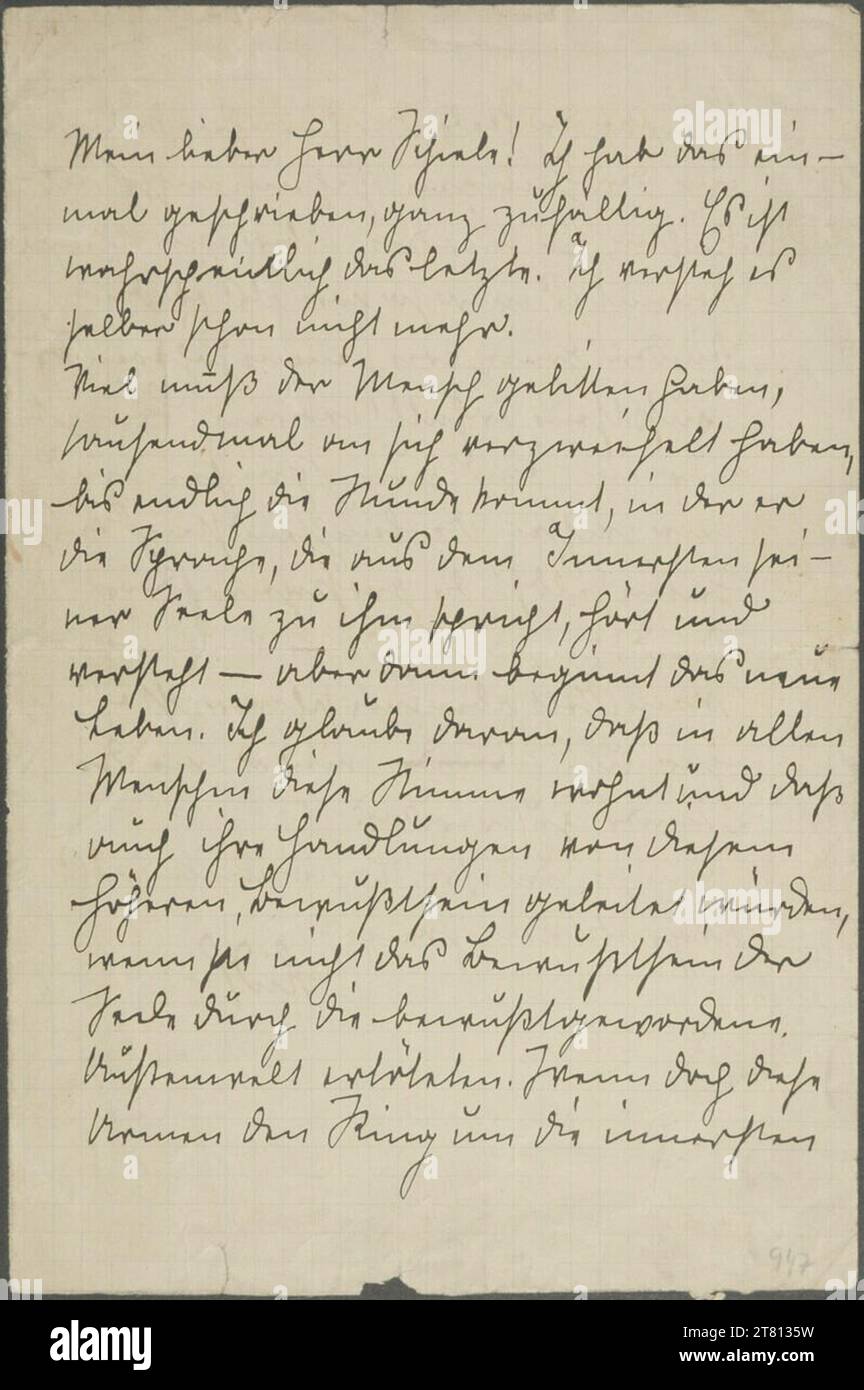 Mein lieber Herr Schiele! Ich hab das ein-
mal geschrieben, ganz zufällig. Es ist
wahrscheinlich das letzte. Ich versteh es
selber schon nicht mehr.
Viel muß der Mensch gelitten haben,
tausendmal an sich verzweifelt haben,
bis endlich die Stunde kommt, in der er
die Sprache, die aus dem Innersten sei-
ner Seele zu ihm spricht, hört und
versteht — aber dann beginnt das neue
Leben. Ich glaube daran, daß in allen
Menschen diese Stimme wohnt und daß
auch ihre Handlungen von diesem
höheren Bewußtsein geleitet würden,
wenn sie nicht das Bewußtsein der
Seele durch die bewußtgewordene
Außenwelt ertöteten. Wenn doch diese
Armen den Ring um die innersten
947
alamy
alamy
alamy
Image ID: 2T8135W
www.alamy.com